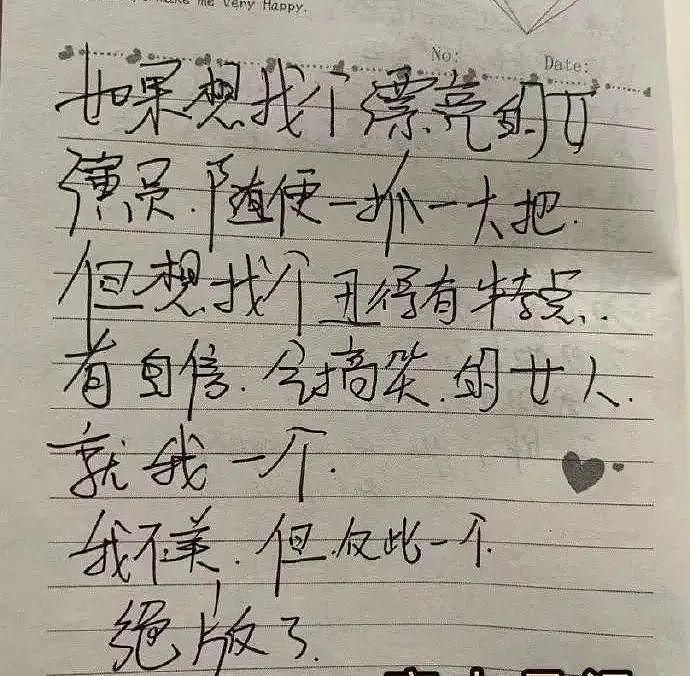 make me very Happy.
No:
Date:
如果想找个漂亮的女
演员.随便一抓一大把.
但想找个丑得有特点..
有自信.会搞笑.的女人.
就我一个.
我不美.但仅此一个.
绝版了.